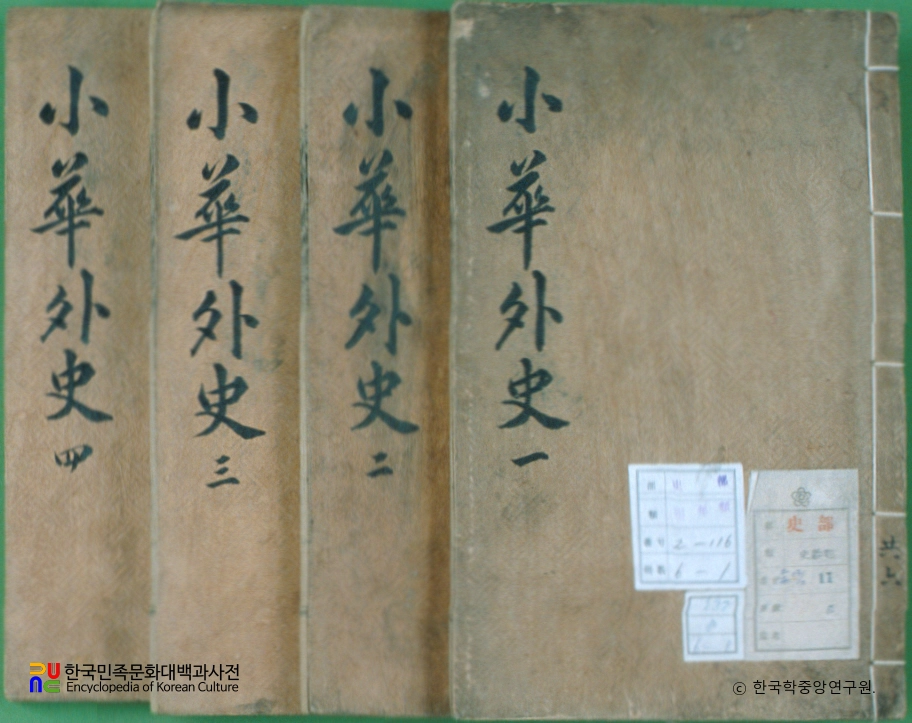 小華外史 一
小華外史 二
小華外史 三
小華外史 四
史 部
2-116
6-1
共六
한국민족문화대백과사전
Encyclopedia of Korean Culture
© 한국학중앙연구원.